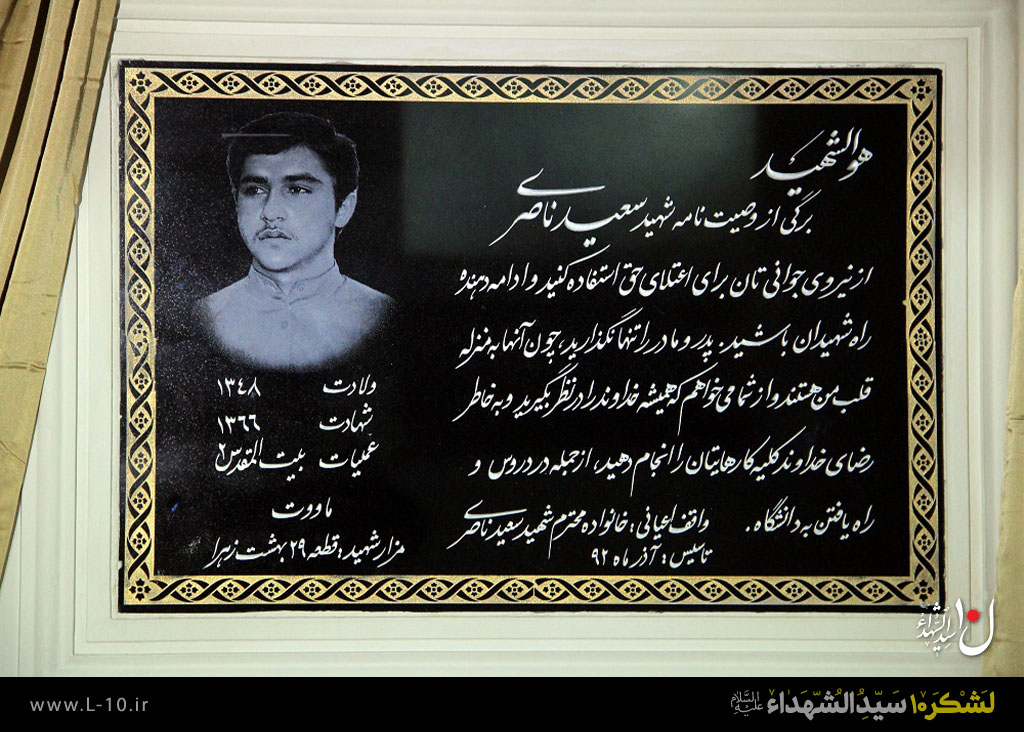 هوالشهید
برگی از وصیت نامه شهید سعید ناصری
از نیروی جوانی تان برای اعتلای حق استفاده کنید و ادامه دهنده
راه شهیدان باشید. پدر و مادر را تنها نگذارید، چون آنها به منزله
قلب من هستند و از شما می خواهم که همیشه خداوند را در نظر بگیرید و به خاطر
رضای خداوند کلیه کارهایتان را انجام دهید، از جمله در دروس و
راه یافتن به دانشگاه.
واقف اعیانی: خانواده محترم شهید سعید ناصری
تاسیس: آذر ماه ۹۲
ولادت ۱۳۴۸
شهادت ۱۳۶۶
عملیات بیت المقدس ۲
ماووت
مزار شهید: قطعه ۲۹ بهشت زهرا
ل۱۰ سیدالشهداء
لَشکَرِ۱۰ سَیِّدُالشُّهَداءِ علیه‌السلام
www.L-10.ir